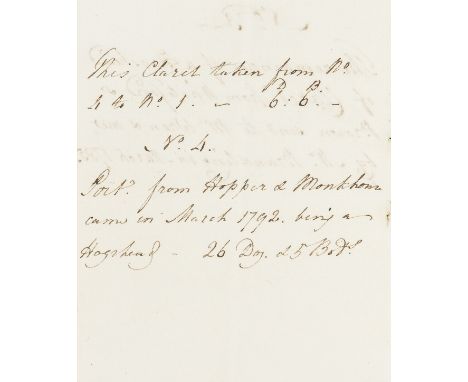 This Claret taken from No.
4 to No. 1. – D. 6. B. 6. –
No. 4.
Port. from Hopper & Monkhouse
came in March 1792. being a
Hogshead – 26 Doz. & 5 Bots.